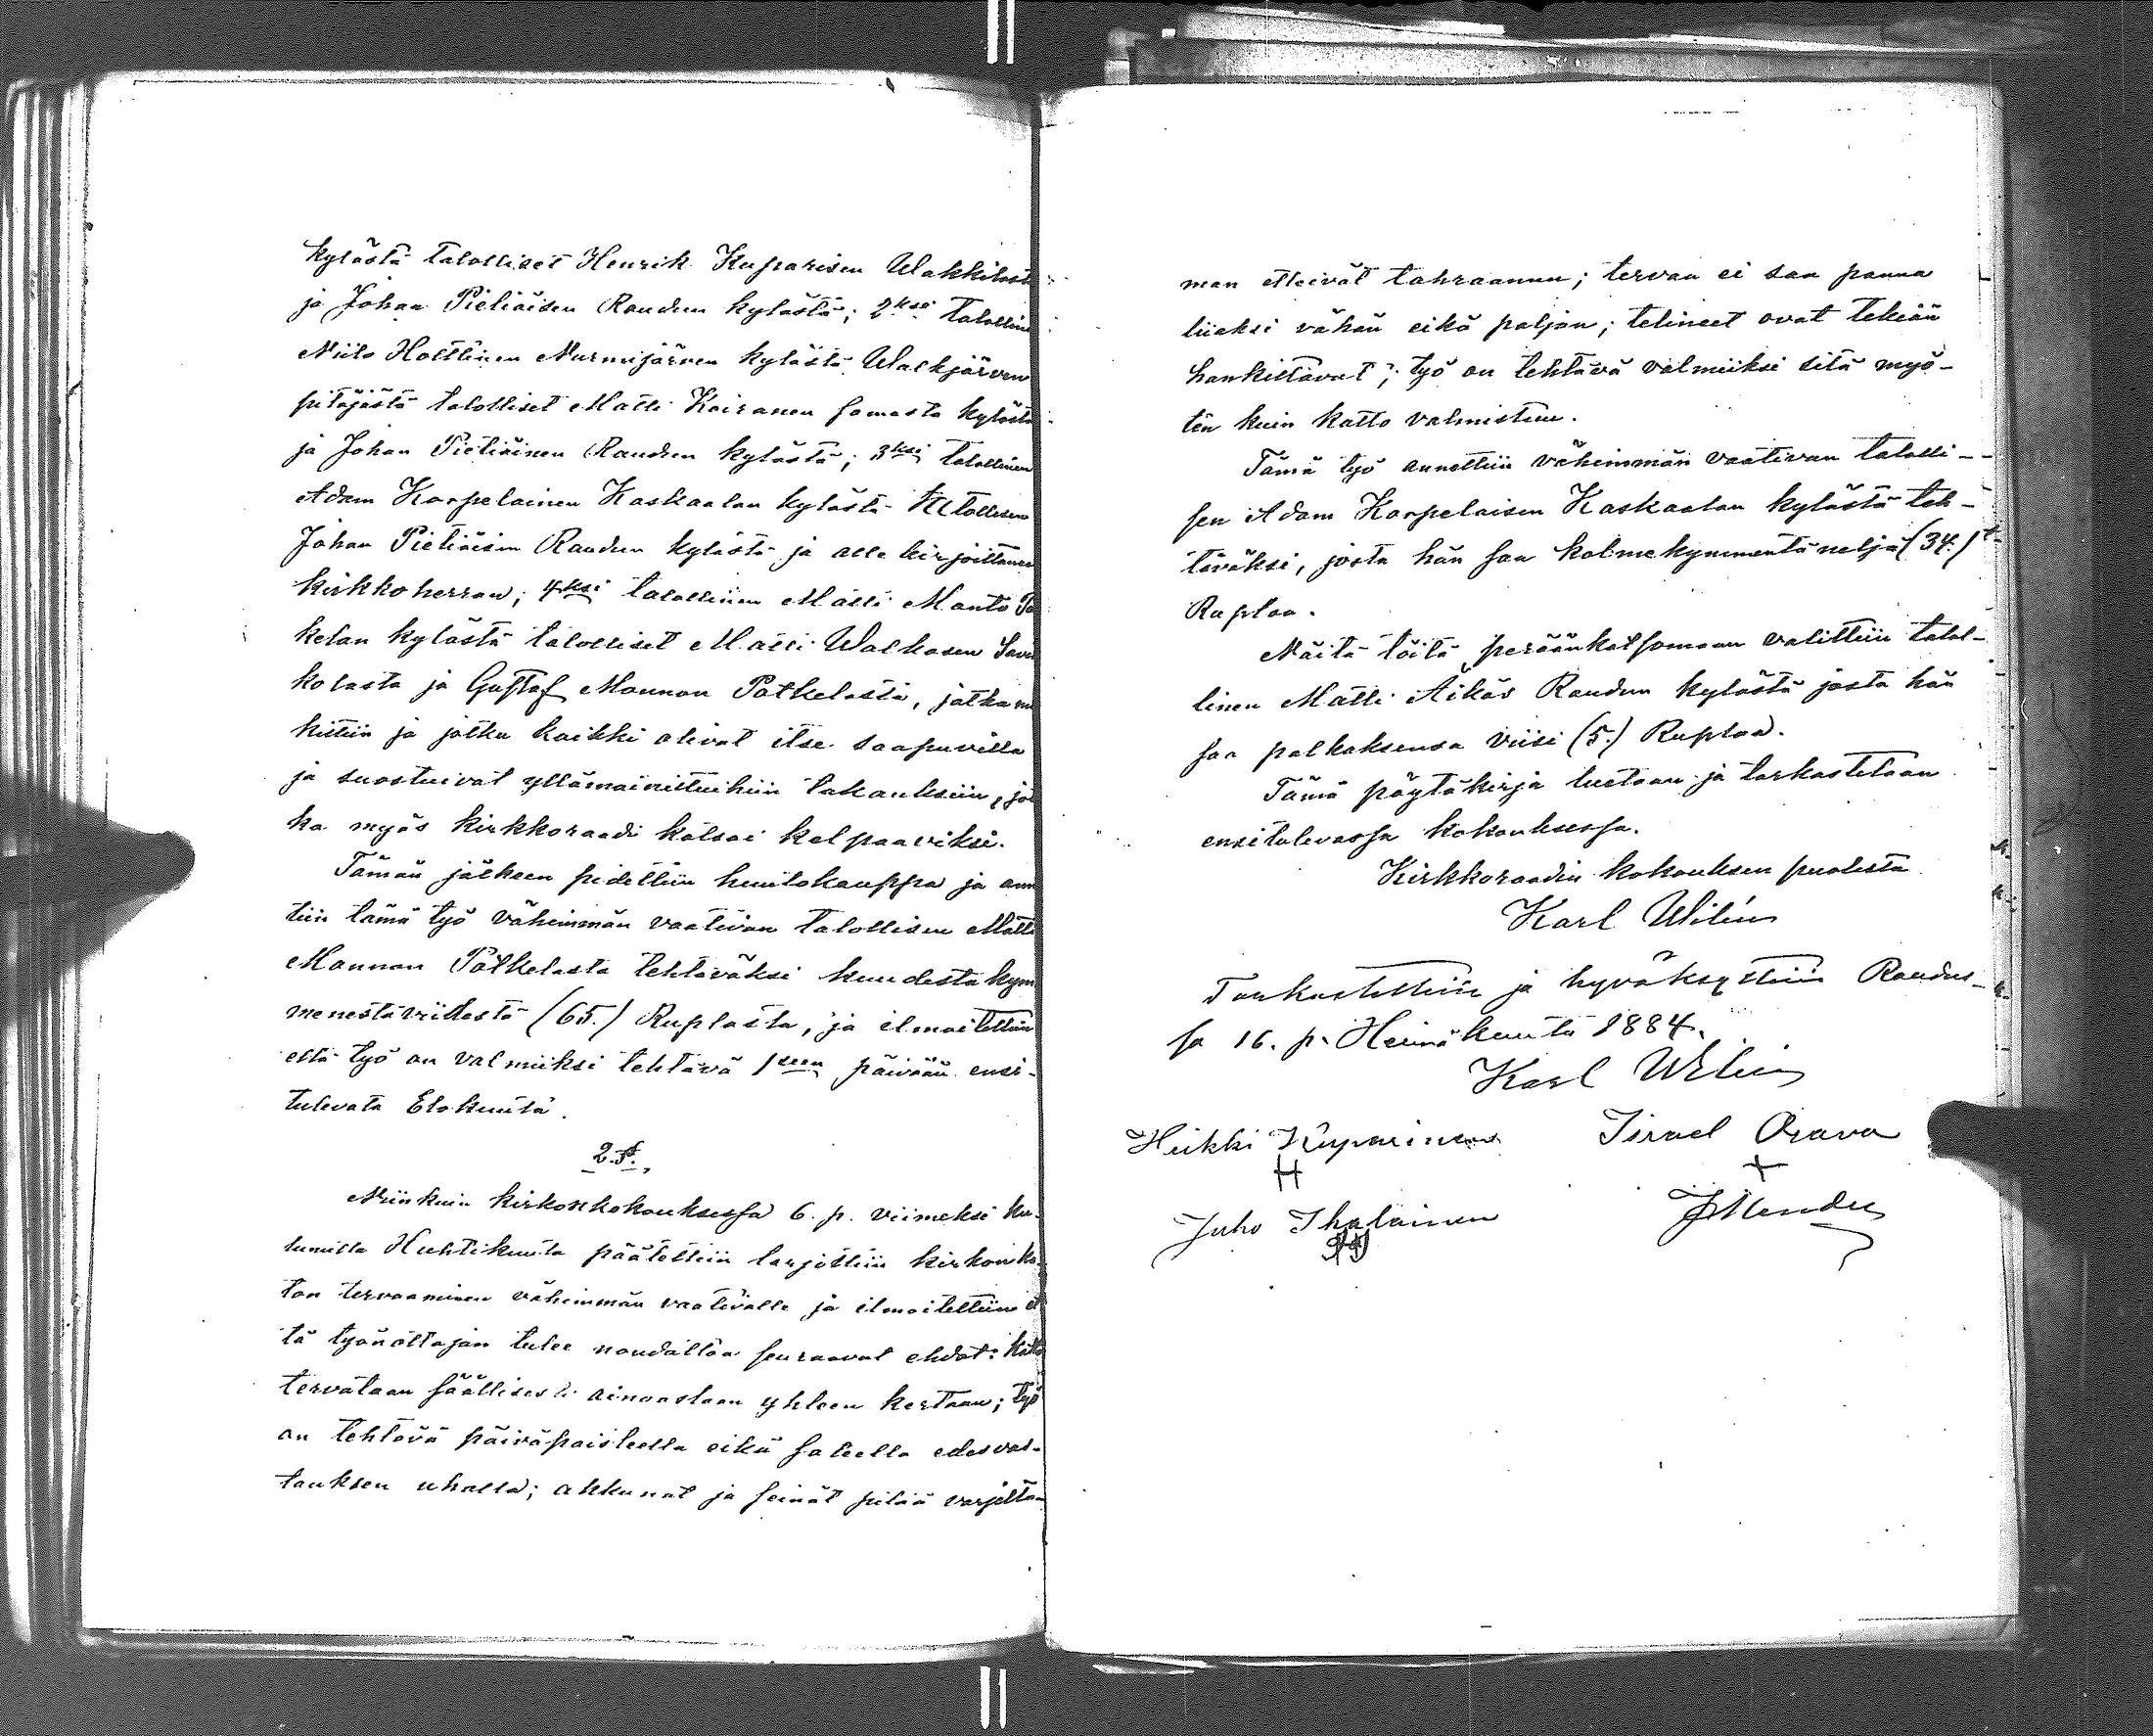 kylästä talolliset Henrik Kuparisen Wakkilast
ja Johan Pietiäisen Raudun kylästä; 2ksi talolline
Niilo Holttinen Nurmijärven kylästä Walkjärven
pitäjästä talolliset Matti Kairanen samasta kyläst
ja Johan Pietiäinen Raudun kylästä; 3ksi talollinen
Adam Karpelainen Kaskaalan kylästä talollisen
Johan Pietiäisen Raudun kylästä ja alle kirjoittanee
kirkkoherran; 4ksi talollinen Matti Manto Pa
kelan kylästä talolliset Matti Walkosen Savi
kolasta ja Gustaf Mannan Palkelasta, jotka m
kittiin ja jotka kaikki olivat itse saapuvilla
ja suostuivat yllämainittuihin takauksiin, jot
ka myös kirkkoraadi katsoi kelpaaviksi.
Tämän jälkeen pidettiin huutokauppa ja ann
tiin tämä työ vähemmän vaativan talollisen Matti
Mannan Palkelasta tehtäväksi kuudesta kym
menestäviidestä (65.) Ruplasta, ja ilmoitettiin
että työ on valmiiksi tehtävä 1seen päivään ensi-
tulevata Elokuuta.
2.§.
Niinkuin kirkonkokouksessa 6. p. viimeksi ku-
lunutta Huhtikuuta päätettiin tarjottiin kirkon ka-
ton tervaaminen vähemmän vaativalle ja ilmoitettiin et
tä työnottajan tulee noudattaa seuraavat ehdot: katto
tervataan säällisesti ainoastaan yhteen kertaan; työ
on tehtävä päiväpaisteella eikä sateella edesvas-
tauksen uhalla; akkunat ja seinät pitää varjelta-
man etteivät tahraannu; tervaa ei saa panna
liiaksi vähän eikä paljon; telineet ovat tekiän
hankittavat; työ on tehtävä valmiiksi sitä myö-
ten kuin katto valmistuu.
Tämä työ annettiin vähemmän vaativan talolli-
sen Adam Karpelaisen Kaskaalan kylästä teh-
täväksi, josta hän saa kolmekymmentä neljä (34.)
Ruplaa.
Näitä töitä peräänkatsomaan valittiin talol-
linen Matti Äikäs Raudun kylästä josta hän
saa palkaksensa viisi (5.) Ruplaa.
Tämä pöytäkirja luetaan ja tarkastetaan
ensitulevassa kokouksessa.
Kirkkoraadin kokouksen puolesta
Karl Wilén
Tarkastettiin ja hyväksyttiin Raudus-
sa 16. p. Heinäkuuta 1884.
Karl Wilén
Heikki Kuparinen Israel Orava
Juho Ihalainen